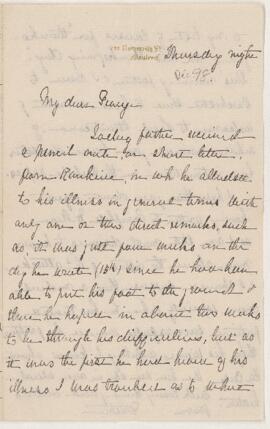 Thursday night
Dec 98.
My dear George.
Today father received
a pencil note, or short letter
from Rankine, in wh he alludes
to his illness in general terms with
only one or two direct remarks, such
as, it was just four weeks on the
day he wrote (15th) since he had been
able to put his foot to the ground &
there he hoped in about two weeks
to be through his difficulties, but as
it was the first he had know of his
illness I was troubled as to what